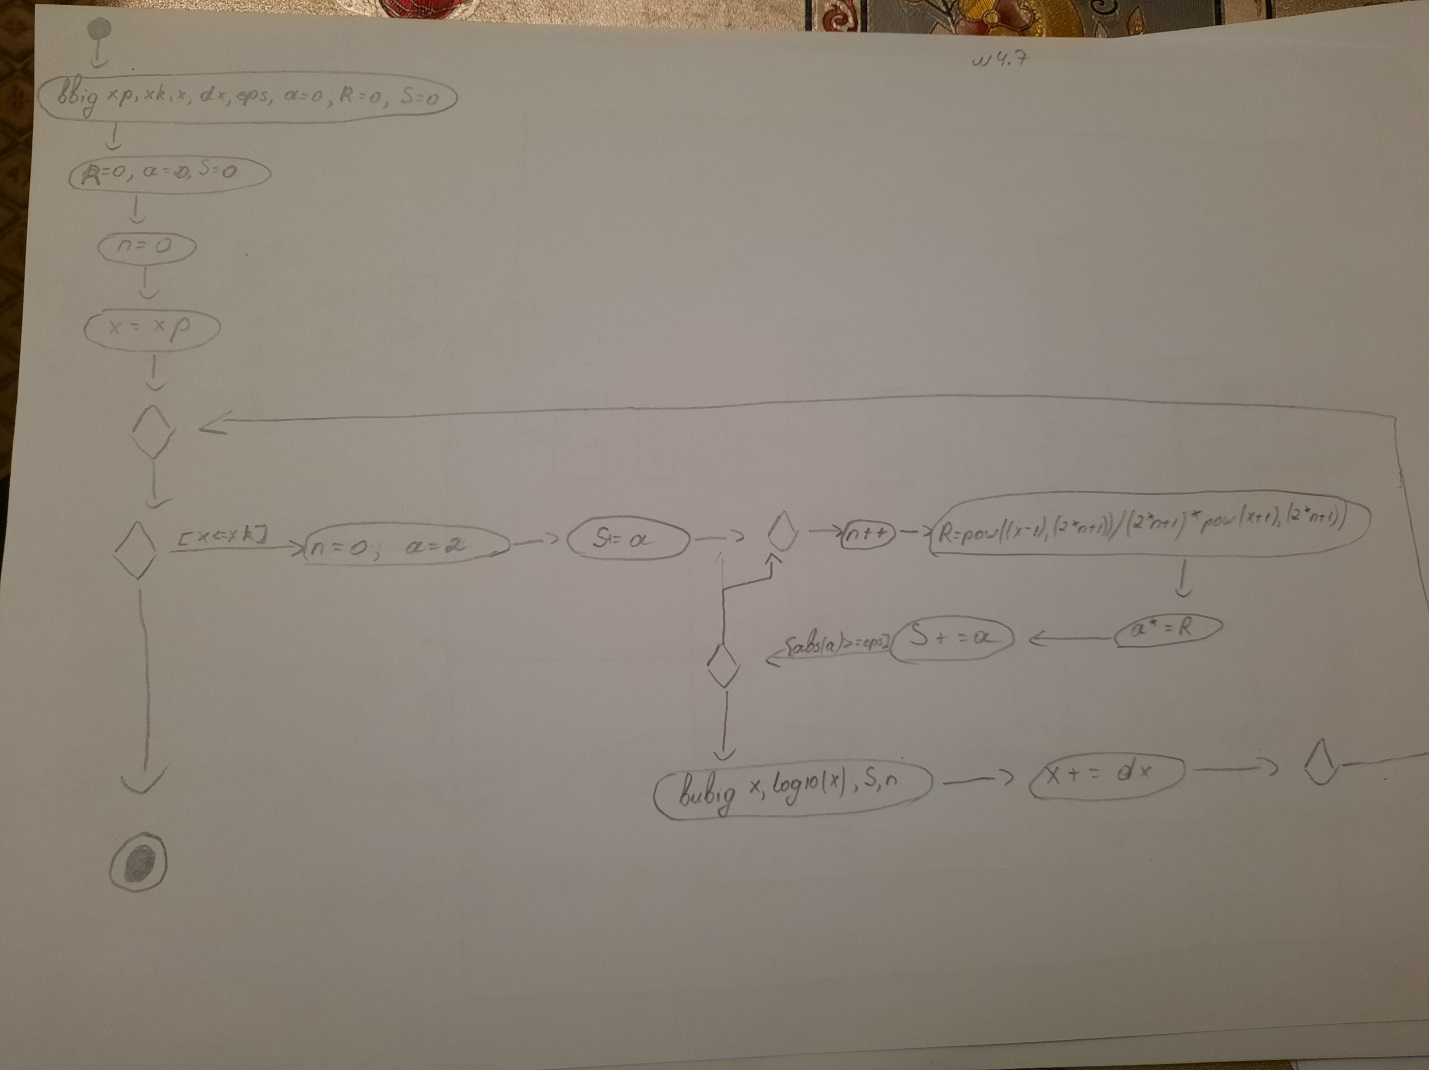 w4.7
ввід xp, xk, x, dx, eps, a=0, R=0, S=0
R=0, a=0, S=0
n=0
x = xp
[x<=xk]
n=0; a=2
S=a
n++
R=pow((x-1),(2*n+1))/(2*n+1)*pow(x+1),(2*n+1))
a*=R
S+=a
[abs(a)>=eps]
вивід x, log10(x), S, n
x+= dx